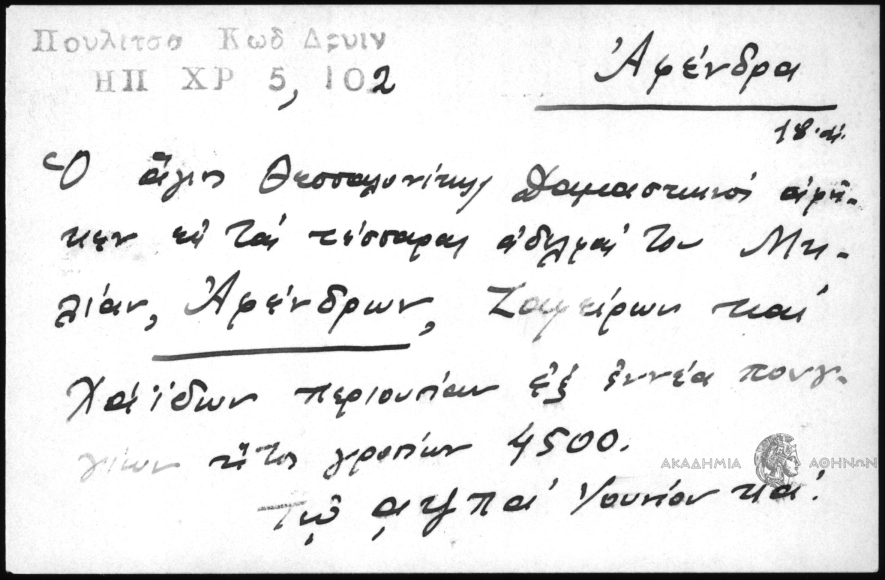 Πουλιτσα Κωδ Δρυιν
ΗΠ ΧΡ 5, 102
Ἀφένδρα
18. αἰ.
Ὁ ἅγιος Θεσσαλονίκης Δαμασκηνός ἀφῆ-
κεν εἰς τάς τέσσαρας ἀδελφάς του Μη-
λίαν, Ἀφένδρων, Ζαφείρων καί
Χάϊδων περιουσίαν ἐξ ἐννέα πουγ-
γίων ἤτοι γροσίων 4500.
Τῷ αψπα' Ἰουνίου κα'.
ΑΚΑΔΗΜΙΑ ΑΘΗΝΩΝ